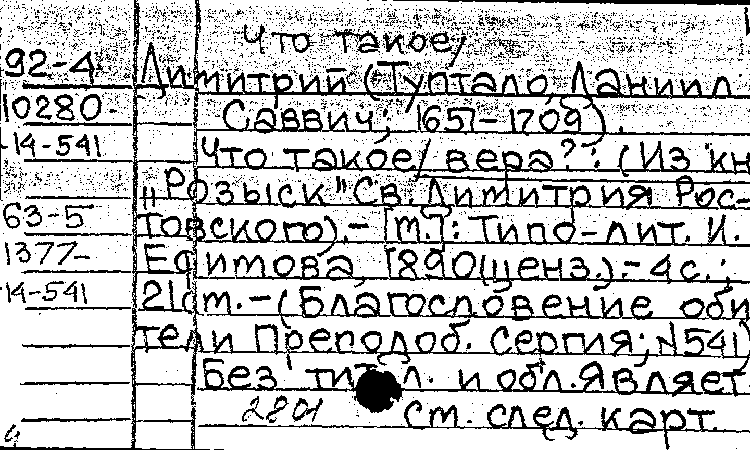 Что такое/
92-4 Димитрий (Туптало, Даниил
10280- Саввич; 1651-1709).
-14-541 Что такое/ вера?: (Из кн
„Розыск" Св. Димитрия Рос-
63-5 товского).- [м.]: Типо-лит. И.
1377- Ефимова, 1890(ценз.).- 4с.;
-14-541 21см.-(Благословение оби
тели Преподоб. Сергия; №541)
Без тит. л. и обл. Являет
2801 См. след. карт.